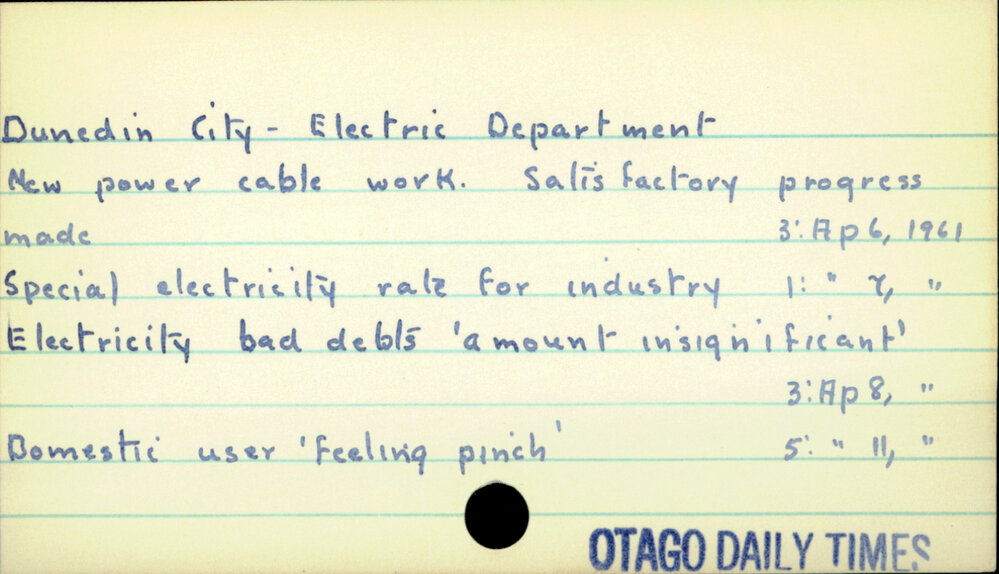 Dunedin City - Electric Department
New power cable work. Satisfactory progress
made 3: Ap 6, 1961
Special electricity rate for industry 1: " 7, "
Electricity bad debts 'amount insignificant'
3: Ap 8, "
Domestic user 'feeling pinch' 5: " 11, "
OTAGO DAILY TIMES